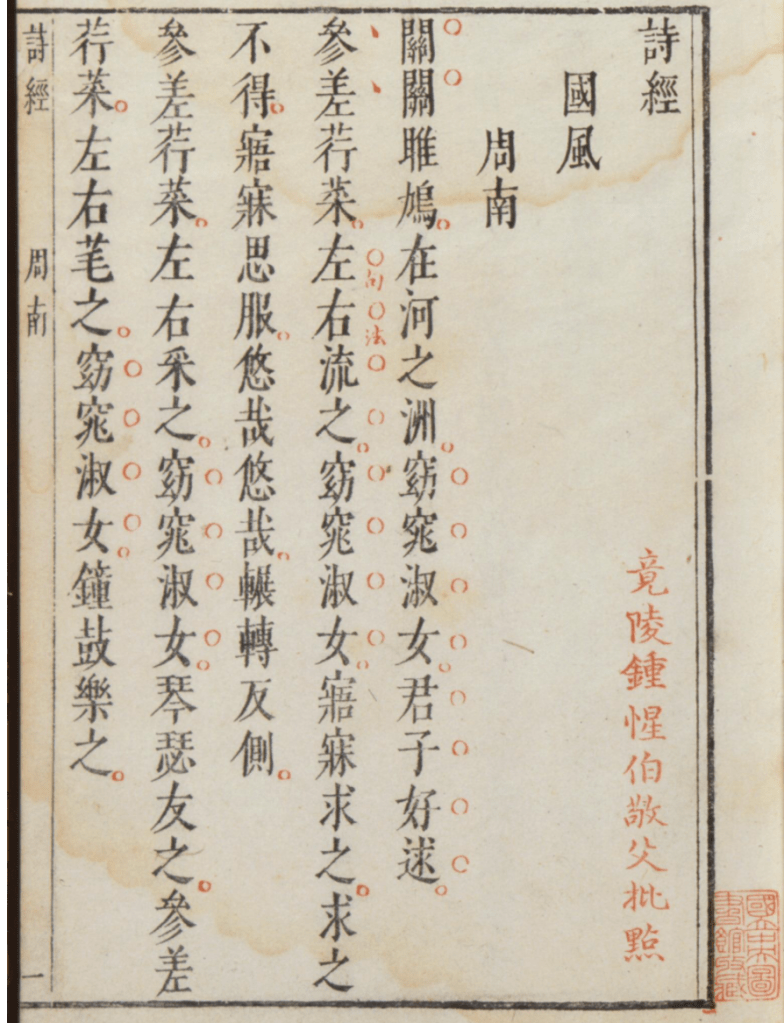 詩經
竟陵鍾惺伯敬父批點
國風
周南
關關雎鳩在河之洲窈窕淑女君子好逑
參差荇菜左右流之窈窕淑女寤寐求之求之
句法
不得寤寐思服悠哉悠哉輾轉反側
參差荇菜左右采之窈窕淑女琴瑟友之參差
荇菜左右芼之窈窕淑女鐘鼓樂之
詩經 周南 一
國立中央圖書館收藏